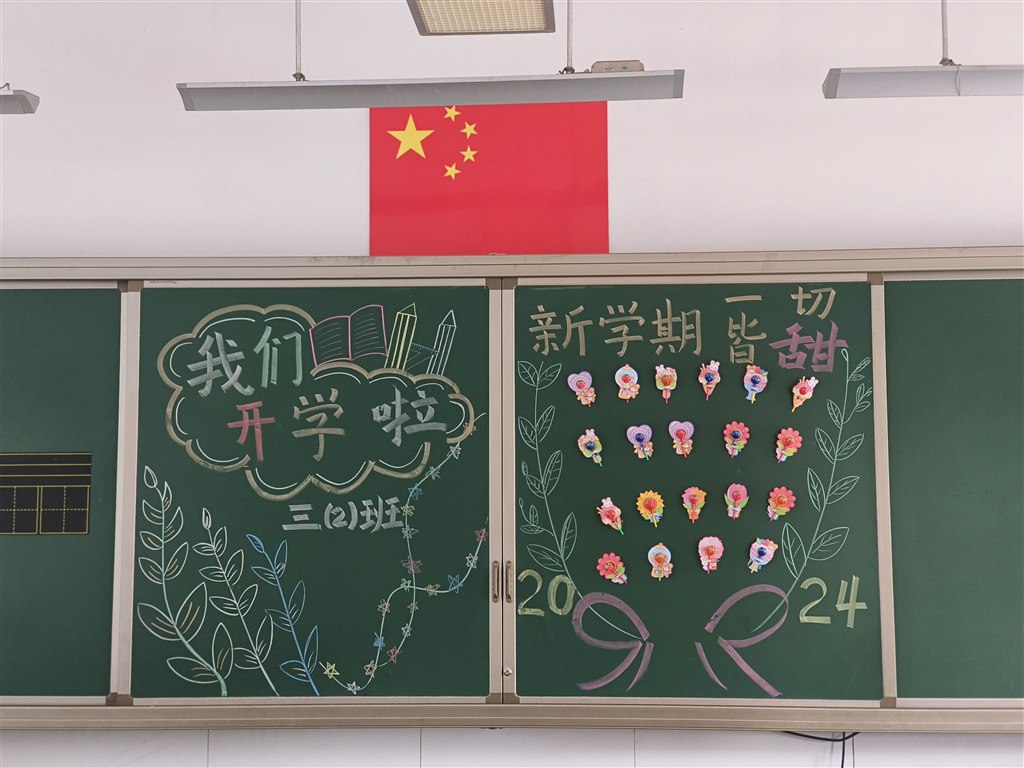 我们
开学啦
三(2)班
新学期一切
皆甜
20 24